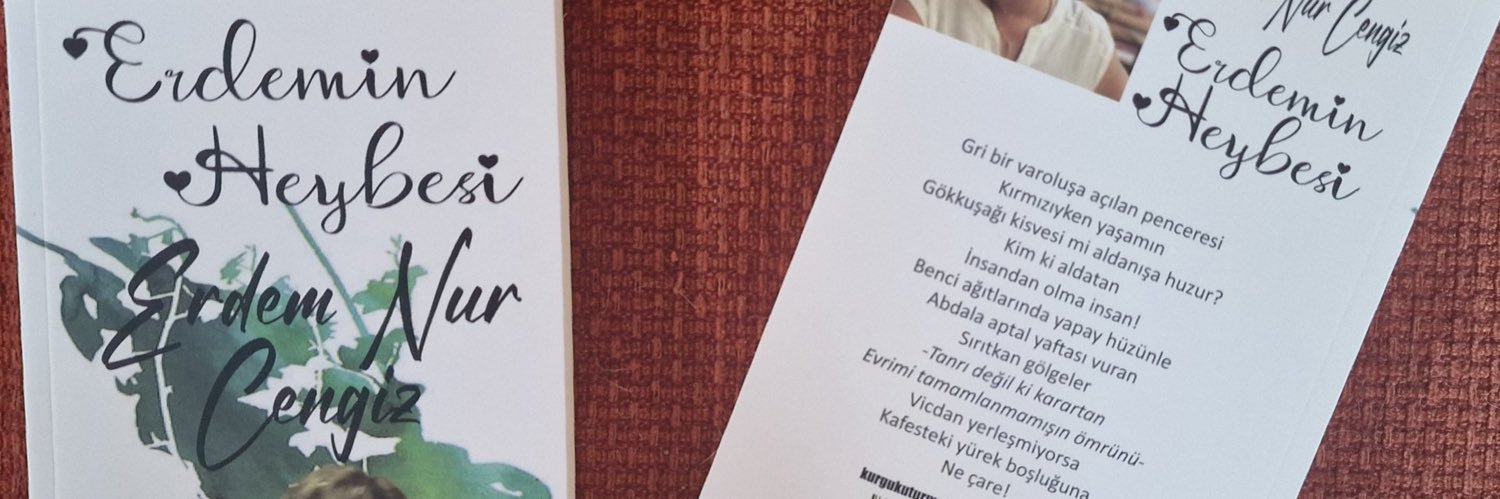 Erdemin
Heybesi
Erdem Nur
Cengiz
Nur Cengiz
Erdemin
Heybesi
Gri bir varoluşa açılan penceresi
Kırmızıyken yaşamın
Gökkuşağı kisvesi mi aldanışa huzur?
Kim ki aldatan
İnsandan olma insan!
Benci ağıtlarında yapay hüzünle
Abdala aptal yaftası vuran
Sırıtkan gölgeler
-Tanrı değil ki karartan
Evrimi tamamlanmamışın ömrünü-
Vicdan yerleşmiyorsa
Kafesteki yürek boşluğuna
Ne çare!